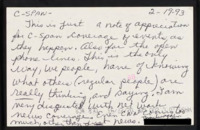 C-SPAN- 2-19-93
This is just a note of appreciation
for C-Span coverage of events as
they happen. Also for the open
phone-lines. This is the only
way, we people, have of knowing
what others (regular people) are
really thinking and saying. I am
very disgusted with net work
news coverage. One can
much other than just news.